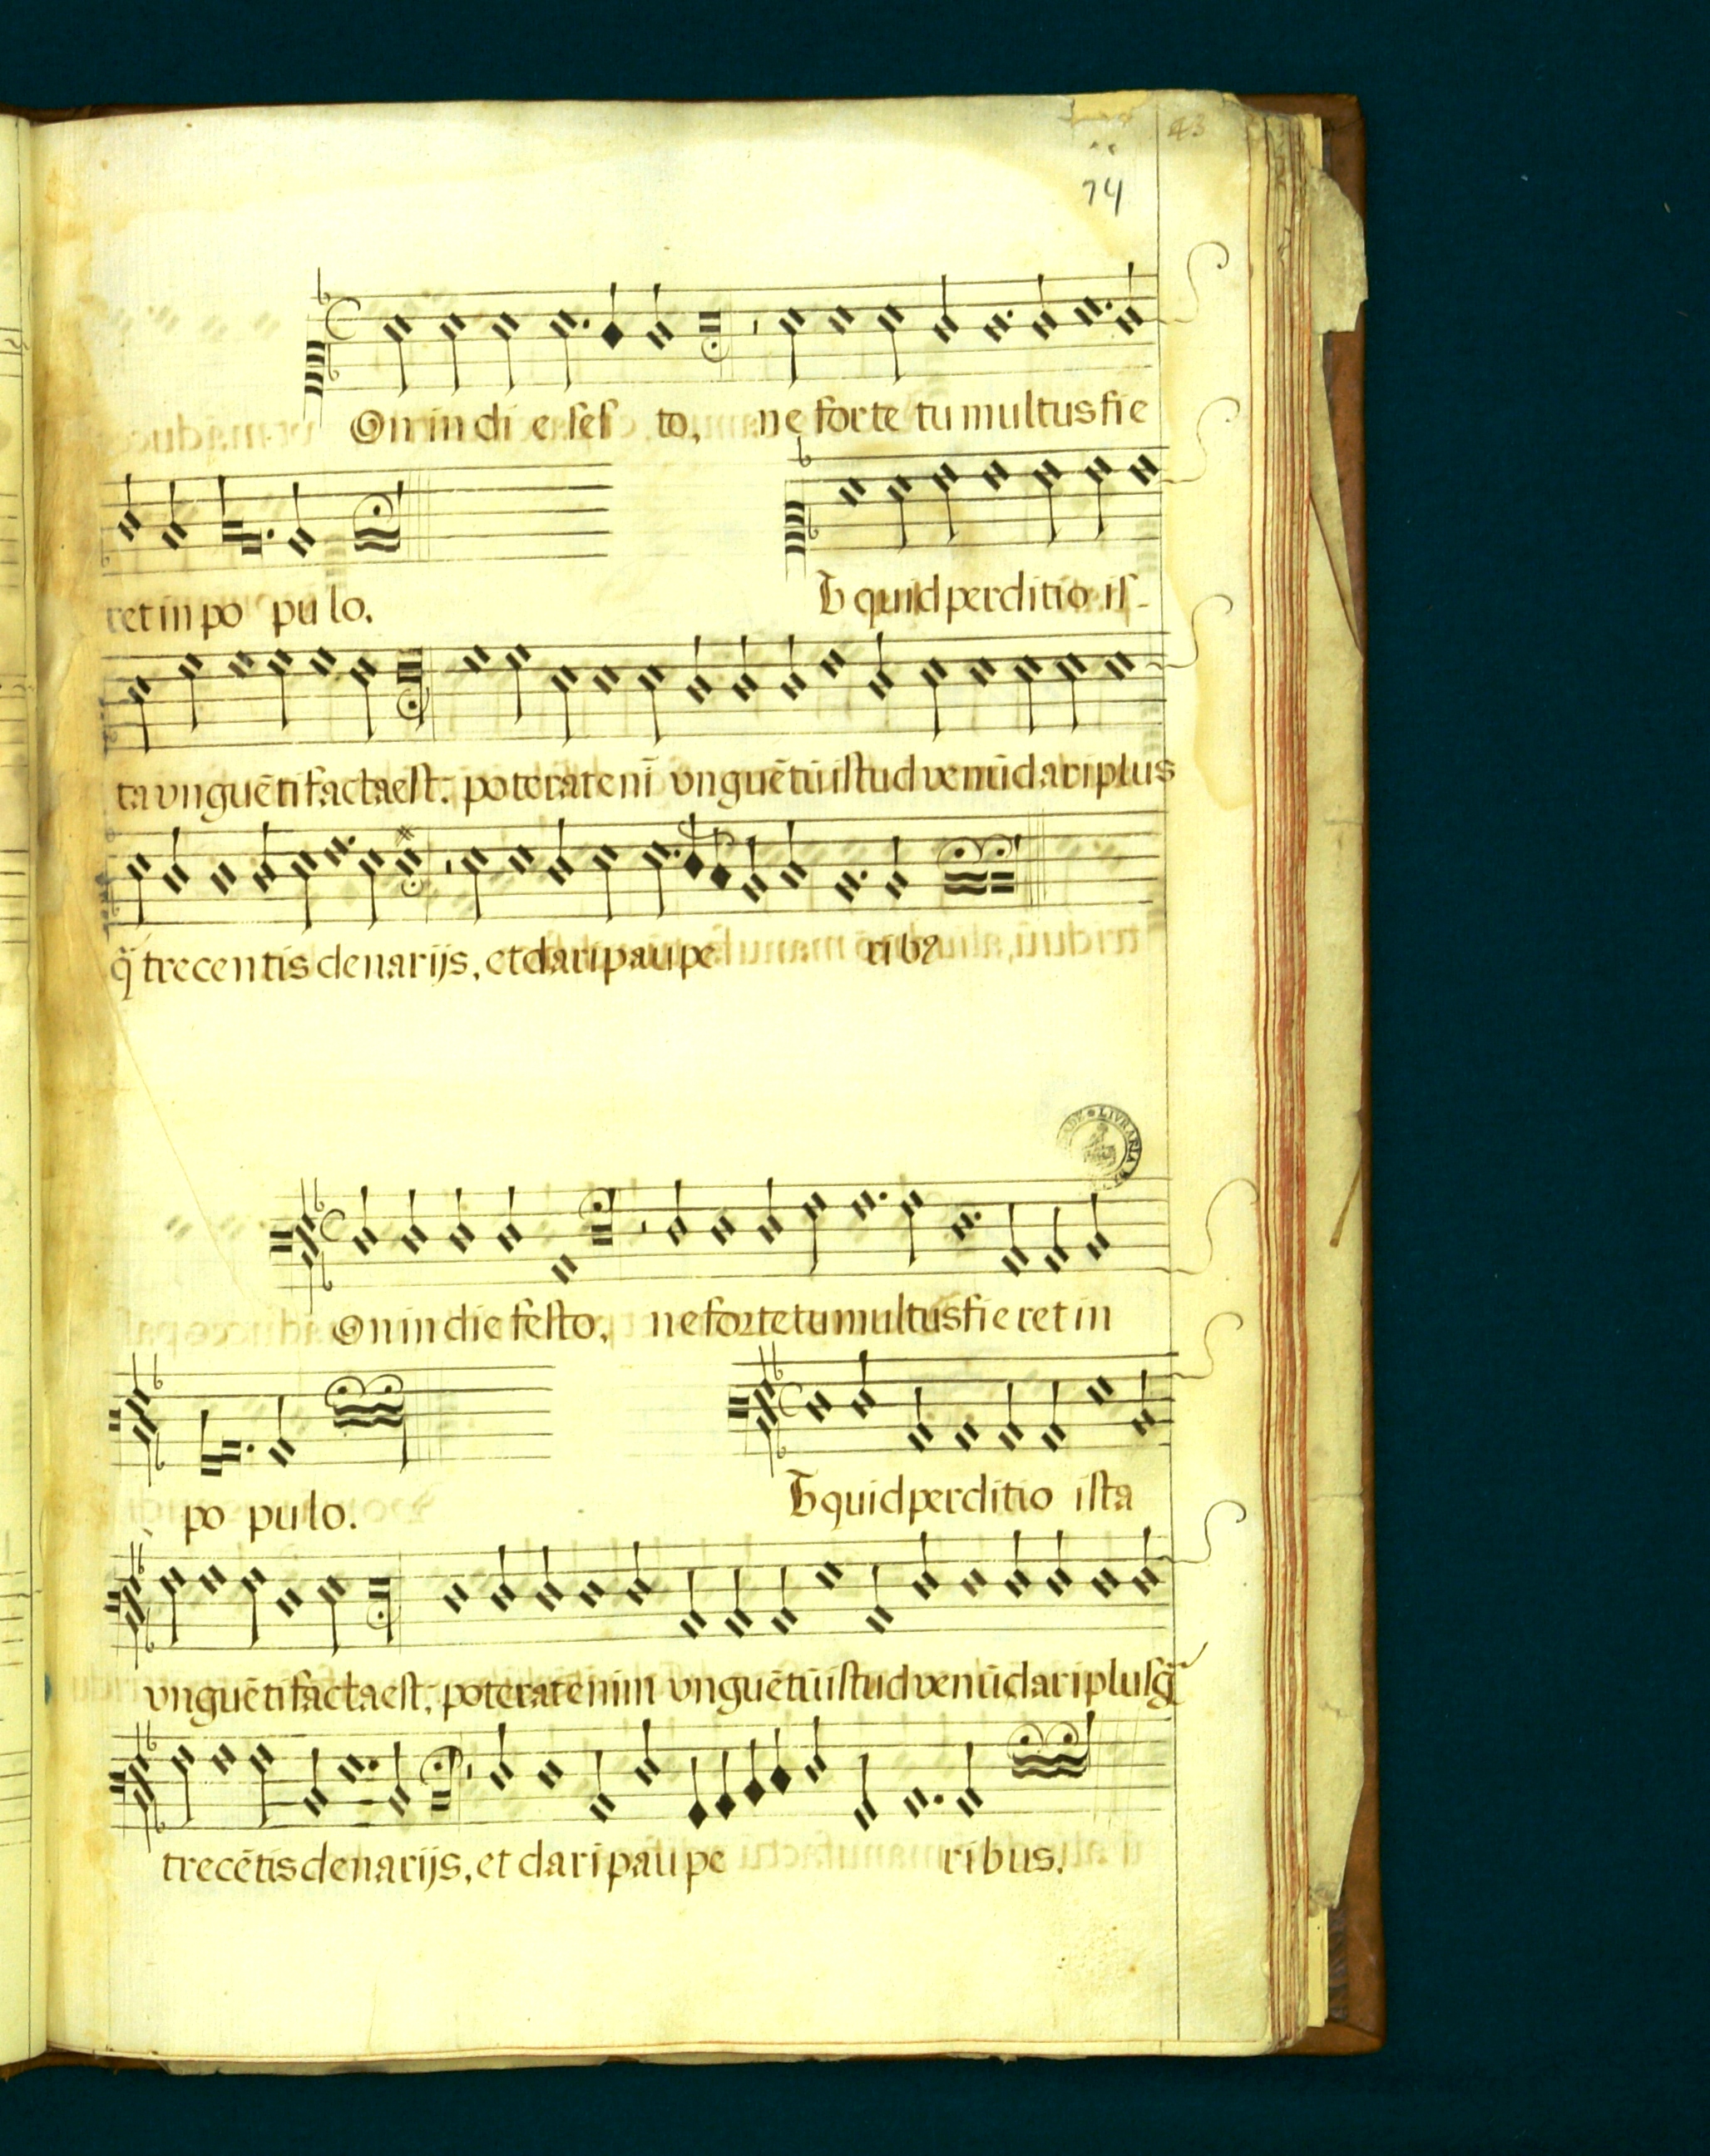 43
74
On in di e fes to, ne forte tu multus fie
ret in po pu lo.
Vt quid perditio is-
ta vnguēti facta est: poterat enī vnguētū istud venūdari plus
q̃ trecentis denarijs, et dari paupe ribꝰ
LIVRARIA
On in die festo, ne forte tu multus fieret in
po pulo.
Vt quid perditio ista
vnguēti facta est, poterat enim vnguētū istud venūdari plus q̃
trecētis denarijs, et dari paupe ribus.